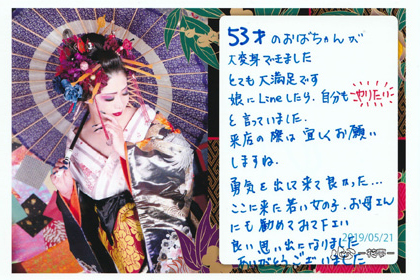 53才のおばちゃんが
大変身でキました
とても大満足です
娘にLineしたり、自分も やりたい
と言っていました。
来店の際は宜しくお願い
しますね。
勇気を出して来て良かった…
ここに来た若い女の子、お母さん
にも勧めておて下さい
良い思い出になりました
ありがとうございました
2019/05/21